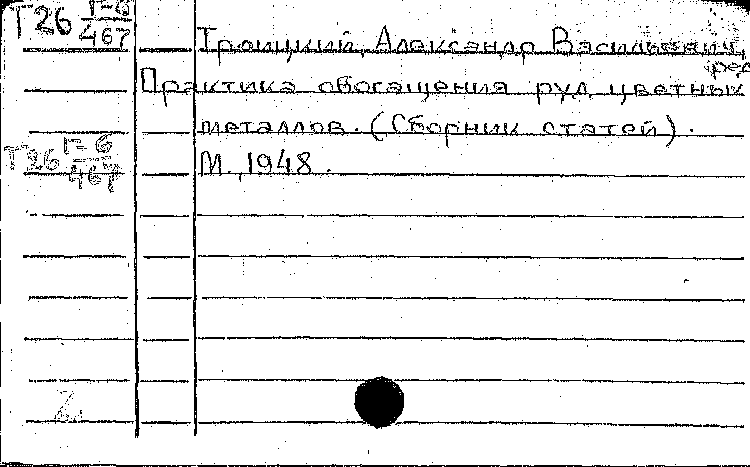 Т26 Г-6
467
Троицкий, Александр Васильевич,
ред
Практика обогащения руд цветных
металлов. (Сборник статей).
Т26 Г-6
467
М., 1948.